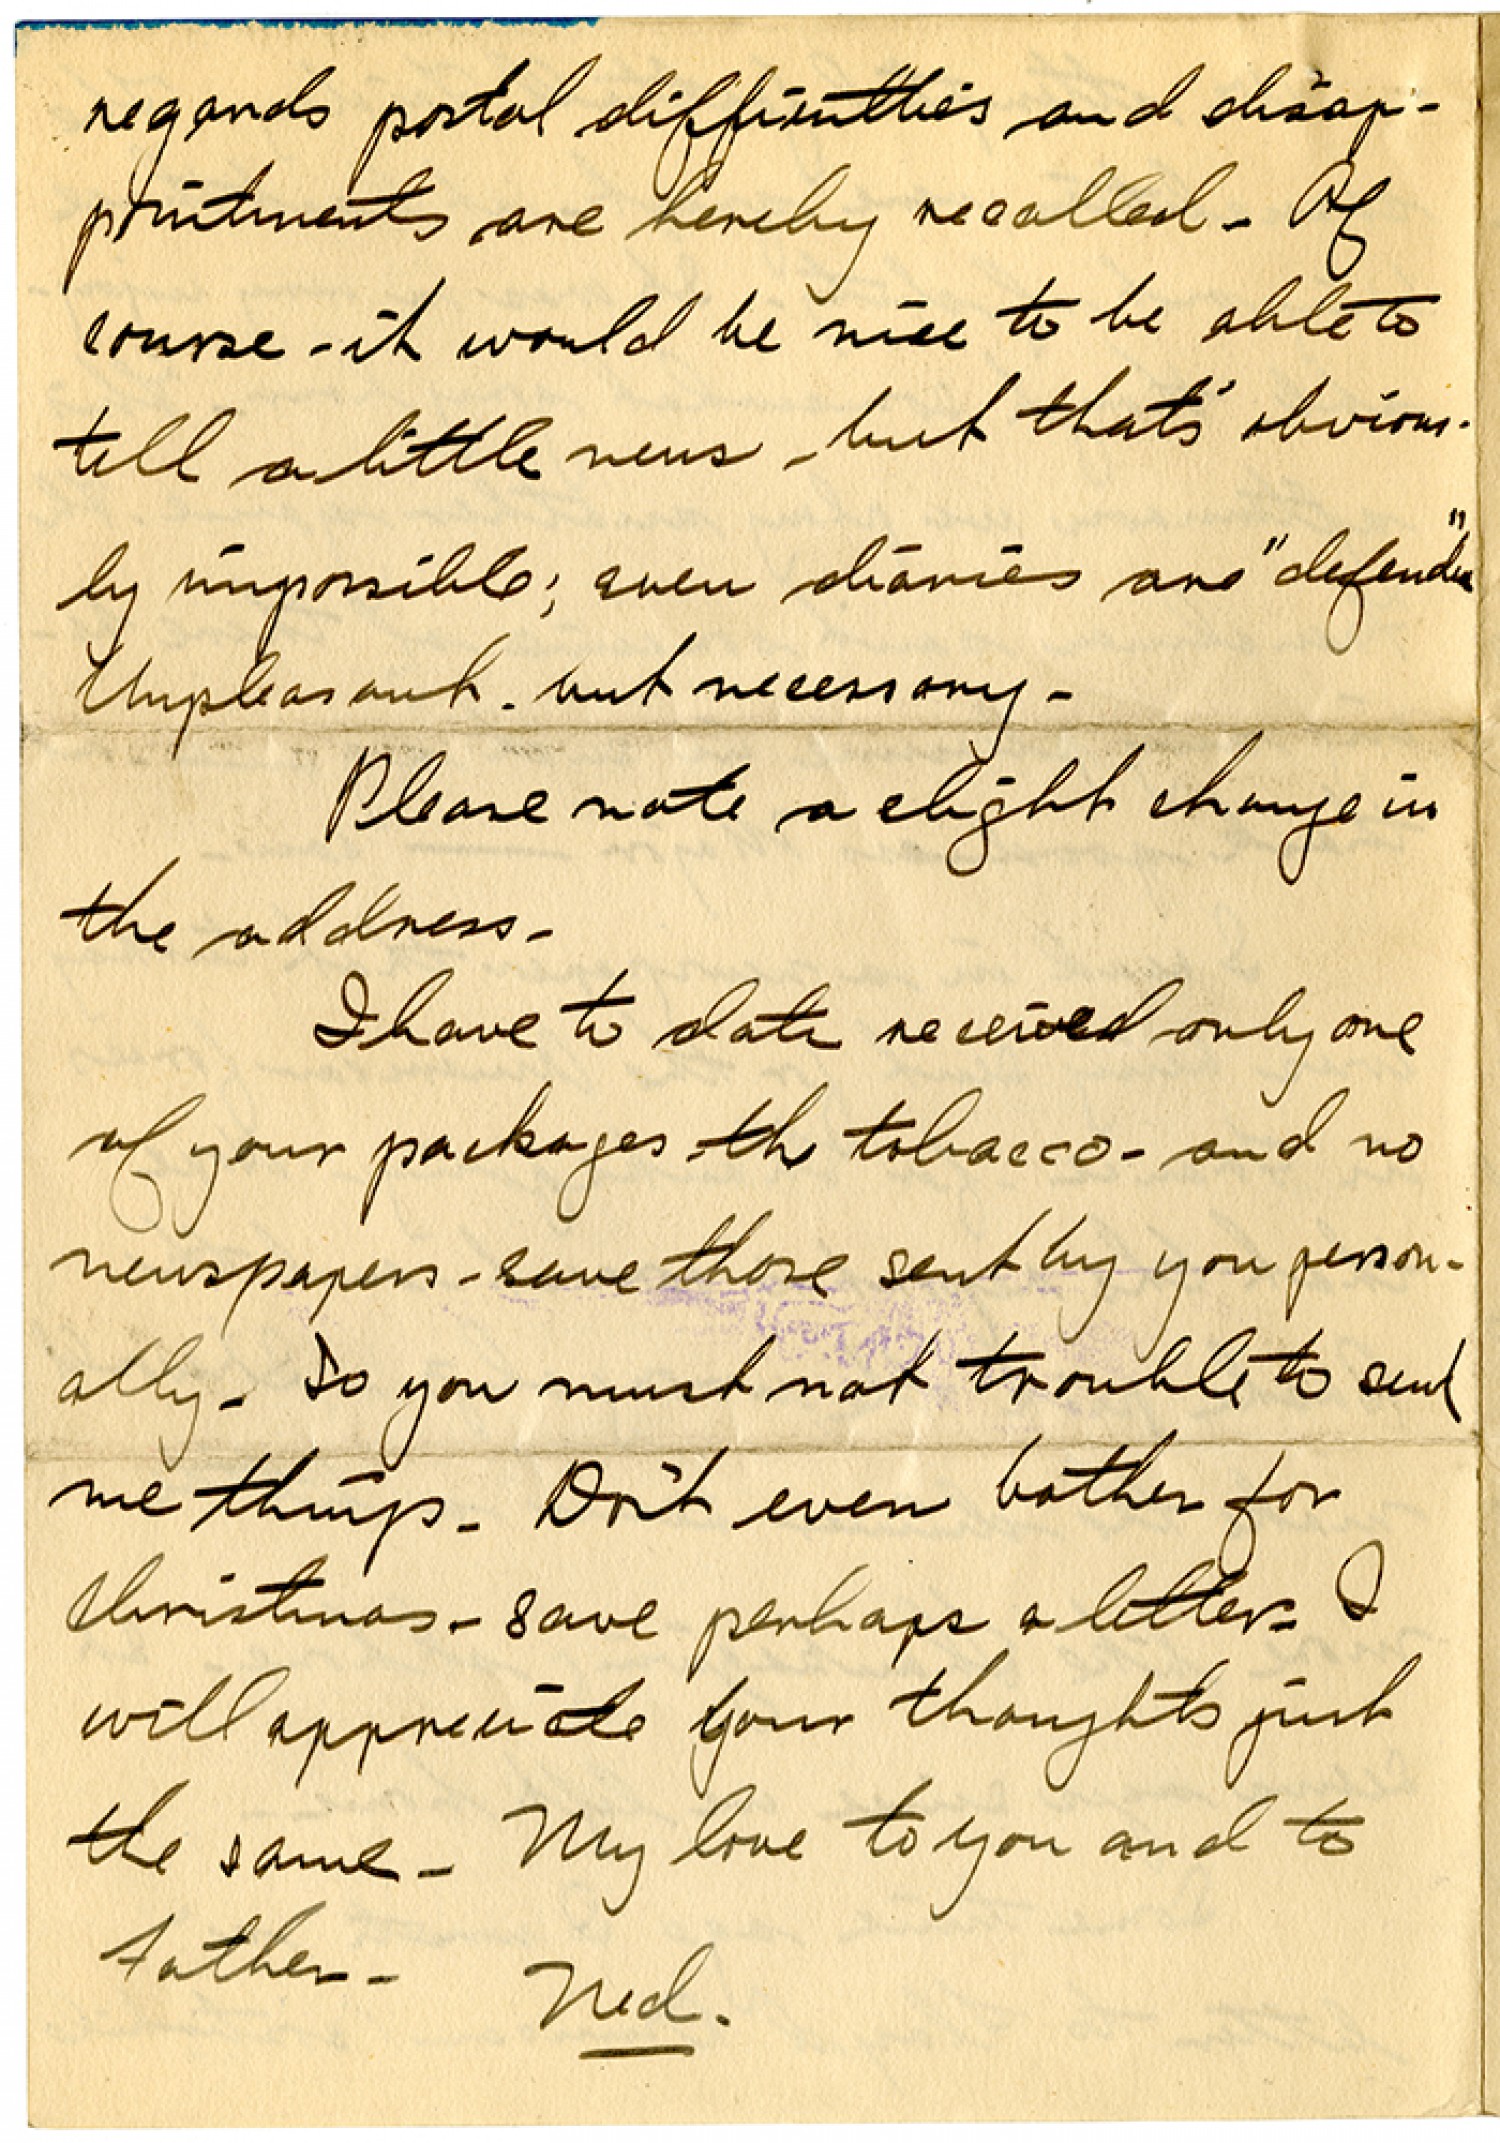 regards postal difficulties and disap-
pointments are hereby recalled - Of
course - it would be nice to be able to
tell a little news - but that's obvious-
ly impossible; even diaries are "defendu"
Unpleasant - but necessary -
Please note a slight change in
the address -
I have to date received only one
of your packages - the tobacco - and no
newspapers - save those sent by you person-
ally - So you must not trouble to send
me things - Don't even bother for
Christmas - save perhaps a letter - I
will appreciate your thoughts just
the same - My love to you and to
Father -
Ned.